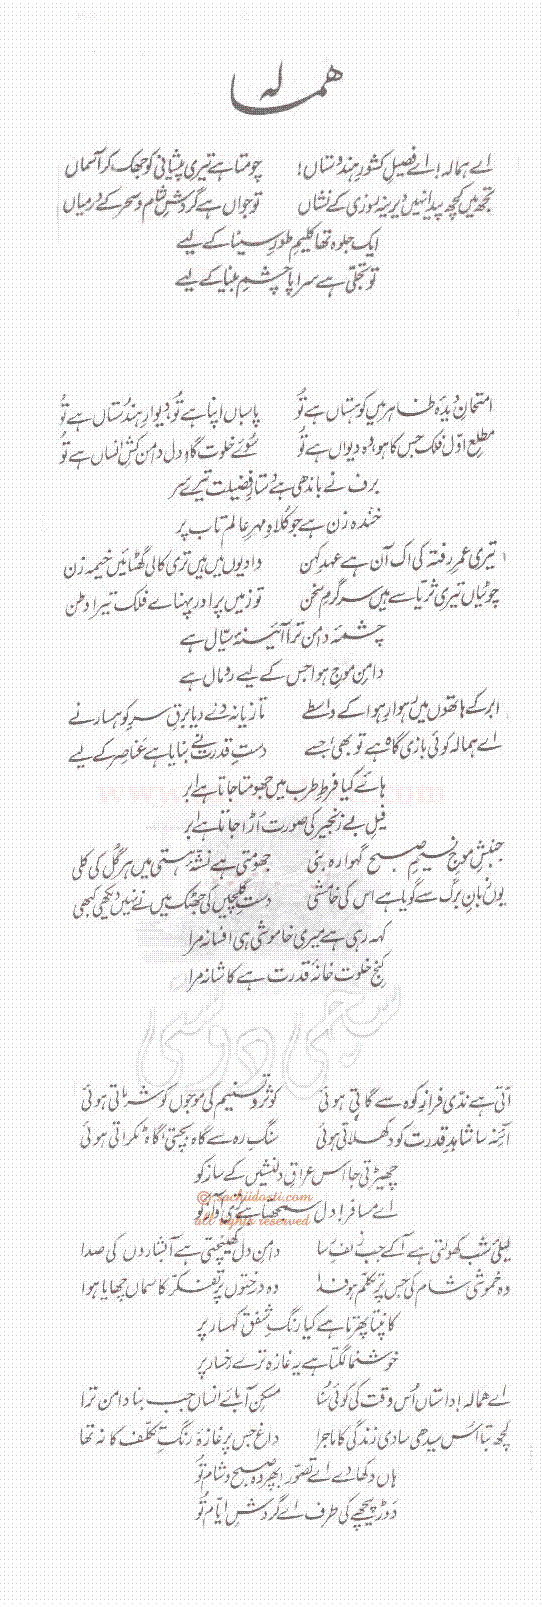 ہمالہ
اے ہمالہ! اے فصیلِ کشورِ ہندوستاں! چومتا ہے تیری پیشانی کو جھک کر آسماں
تجھ میں کچھ پیدا نہیں دیرینہ روزی کے نشاں تو جواں ہے گردشِ شام و سحر کے درمیاں
ایک جلوہ تھا کلیمِ طورِ سینا کے لیے
تو تجلّی ہے سراپا چشمِ بینا کے لیے
امتحانِ دیدۂ ظاہر میں کوہستاں ہے تُو پاسباں اپنا ہے تُو دیوارِ ہندستاں ہے تُو
مطلعِ اوّل فلک جس کا ہو وہ دیواں ہے تُو سُوئے خلوت گاہِ دل دامن کشِ انساں ہے تُو
برف نے باندھی ہے دستارِ فضیلت تیرے سر
خندہ زن ہے جو کلاہِ مہرِ عالم تاب پر
تیری عمرِ رفتہ کی اک آن ہے عہدِ کہن وادیوں میں ہیں تری کالی گھٹائیں خیمہ زن
چوٹیاں تیری ثریا سے ہیں سرگرمِ سخن تو زمیں پر اور پہنائے فلک تیرا وطن
چشمۂ دامن ترا آئینۂ سیّال ہے
دامنِ موجِ ہوا جس کے لیے رومال ہے
ابر کے ہاتھوں میں رہوارِ ہوا کے واسطے تازیانہ دے دیا برقِ سرِ کوہسار نے
اے ہمالہ کوئی بازی گاہ ہے تو بھی، جسے دستِ قدرت نے بنایا ہے عناصر کے لیے
ہائے کیا فرطِ طرب میں جھومتا جاتا ہے ابر
فیلِ بے زنجیر کی صورت اُڑا جاتا ہے ابر
جنبشِ موجِ نسیمِ صبح گہوارہ بنی جھومتی ہے نشّۂ ہستی میں ہر گُل کی کلی
یوں زبانِ برگ سے گویا ہے اس کی خامشی دستِ گلچیں کی جھٹک میں نے نہیں دیکھی کبھی
کہہ رہی ہے میری خاموشی ہی افسانہ مرا
کنجِ خلوت خانۂ قدرت ہے کاشانہ مرا
آتی ہے ندّی فرازِ کوہ سے گاتی ہوئی کوثر و تسنیم کی موجوں کو شرماتی ہوئی
آئنہ سا شاہدِ قدرت کو دکھلاتی ہوئی سنگِ رہ سے گاہ بچتی گاہ ٹکراتی ہوئی
چھیڑتی جا اس عراقِ دلنشیں کے ساز کو
اے مسافر! دل سمجھتا ہے تری آواز کو
© sachiidosti.com
all rights reserved
لیلیِٰ شب کھولتی ہے آ کے جب زلفِ رسا دامنِ دل کھینچتی ہے آبشاروں کی صدا
وہ خموشی شام کی جس پر تکلّم ہو فدا وہ درختوں پر تفکّر کا سماں چھایا ہوا
کانپتا پھرتا ہے کیا رنگِ شفق کہسار پر
خوشنما لگتا ہے یہ غازہ ترے رخسار پر
اے ہمالہ! داستاں اُس وقت کی کوئی سُنا مسکنِ آبائے انساں جب بنا دامن ترا
کچھ بتا اُس سیدھی سادی زندگی کا ماجرا داغ جس پر غازۂ رنگِ تکلّف کا نہ تھا
ہاں دکھا دے اے تصوّر! پھر وہ صبح و شام تُو
دوڑ پیچھے کی طرف اے گردشِ ایّام تُو
سچی دوستی